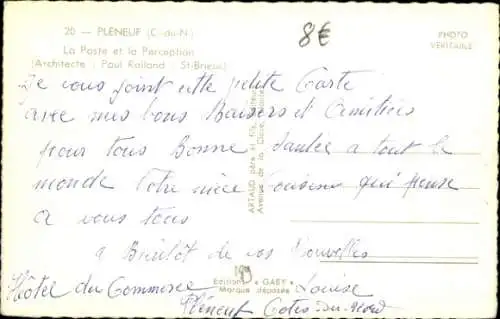 20 — PLÉNEUF (C.-du-N.)
La Poste et la Perception
(Architecte : Paul Rolland - St-Brieuc)
8€
PHOTO
VÉRITABLE
Je vous joint cette petite Carte
avec mes bons Baisers et Amitiées
pour tous Bonne Santée a tout le
monde Votre nièce Cousine qui pense
a vous tous
a Bientôt de vos Nouvelles
Louise
Hôtel du Commerce
Pléneuf Cotes-du-Nord
ARTAUD père et fils, Éditeurs
Avenue de la Close, Nantes
Editions « GABY »
Marque déposée